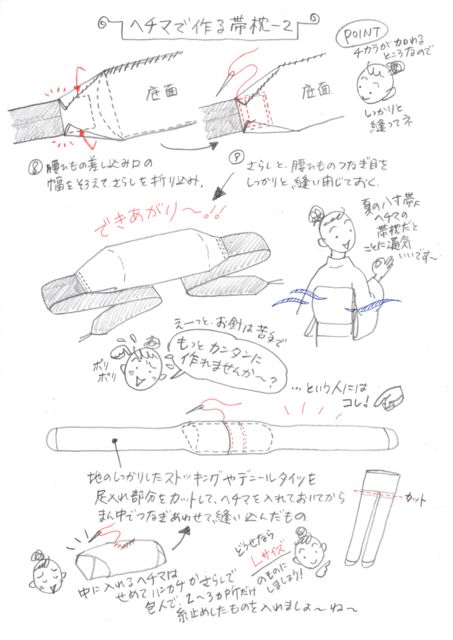 ヘチマで作る帯枕-2
POINT
チカラが加わる
ところなので
しっかりと
縫ってネ
底面
底面
⑧腰ひもの差し込み口の
幅をそろえて、さらしを折り込み、
⑨さらしと、腰ひものつなぎ目を
しっかりと、縫い閉じておく。
できあがり〜!!
夏の八寸帯に
ヘチマの
帯枕だと
ことに通気
いいです〜
えーっと、お針は苦手で
もっとカンタンに
作れませんか〜?
ポリ
ポリ
…という人には
コレ!
地のしっかりしたストッキングやデニールタイツを
足入れ部分をカットして、ヘチマを入れておいてから
まん中でつなぎあわせて、縫い込んだもの
カット
どうせなら
Lサイズ
のものに
しましょう!
中に入れるヘチマは
せめてハンカチかさらしで
包んで、2〜3カ所だけ
糸止めしたものを入れましょ〜ね〜